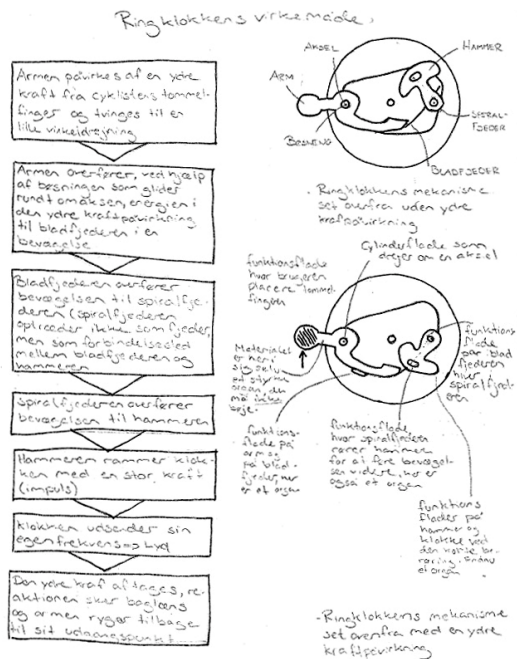 Ringklokkens virkemåde.
Armen påvirkes af en ydre
kraft fra cyklistens tommel-
finger og tvinges til en
lille vinkeldrejning
Armen overfører, ved hjælp
af bøsningen som glider
rundt om aksen, energien i
den ydre kraftpåvirkning
til bladfjederen i en
bevægelse
Bladfjederen overfører
bevægelsen til spiralfje-
deren (spiralfjederen
optræder ikke som fjeder,
men som forbindelsesled
mellem bladfjederen og
hammeren
Spiralfjederen overfører
bevægelsen til hammeren
Hammeren rammer klok-
ken med en stor kraft
(impuls)
Klokken udsender sin
egenfrekvens => lyd
Den ydre kraf aftages, re-
aktionen sker baglæns
og armen ryger tilbage
til sit udgangspunkt
AKSEL
HAMMER
ARM
BØSNING
SPIRAL-
FJEDER
BLADFJEDER
- Ringklokkens mekanisme
set ovenfra uden ydre
kraftpåvirkning
Cylinderflade som
drejer om en aksel
funktionsflade
hvor brugeren
placere tommel-
fingeren
Materialet
er her i
sig selv
et styrke
organ da
må ikke
bøje.
funktions-
flade på
arm og
på blad-
fjeder, her
er et organ
funktionsflade,
hvor spiralfjederen
rører hammeren
for at føre bevægel-
sen videre. Her er
også et organ
funktions
flade
på blad
fjederen
hvor
spiralfjed-
eren
funktions
flader på
hammer og
klokke ved
den korte be-
røring. Endnu
et organ
- Ringklokkens mekanisme
set ovenfra med en ydre
kraftpåvirkning